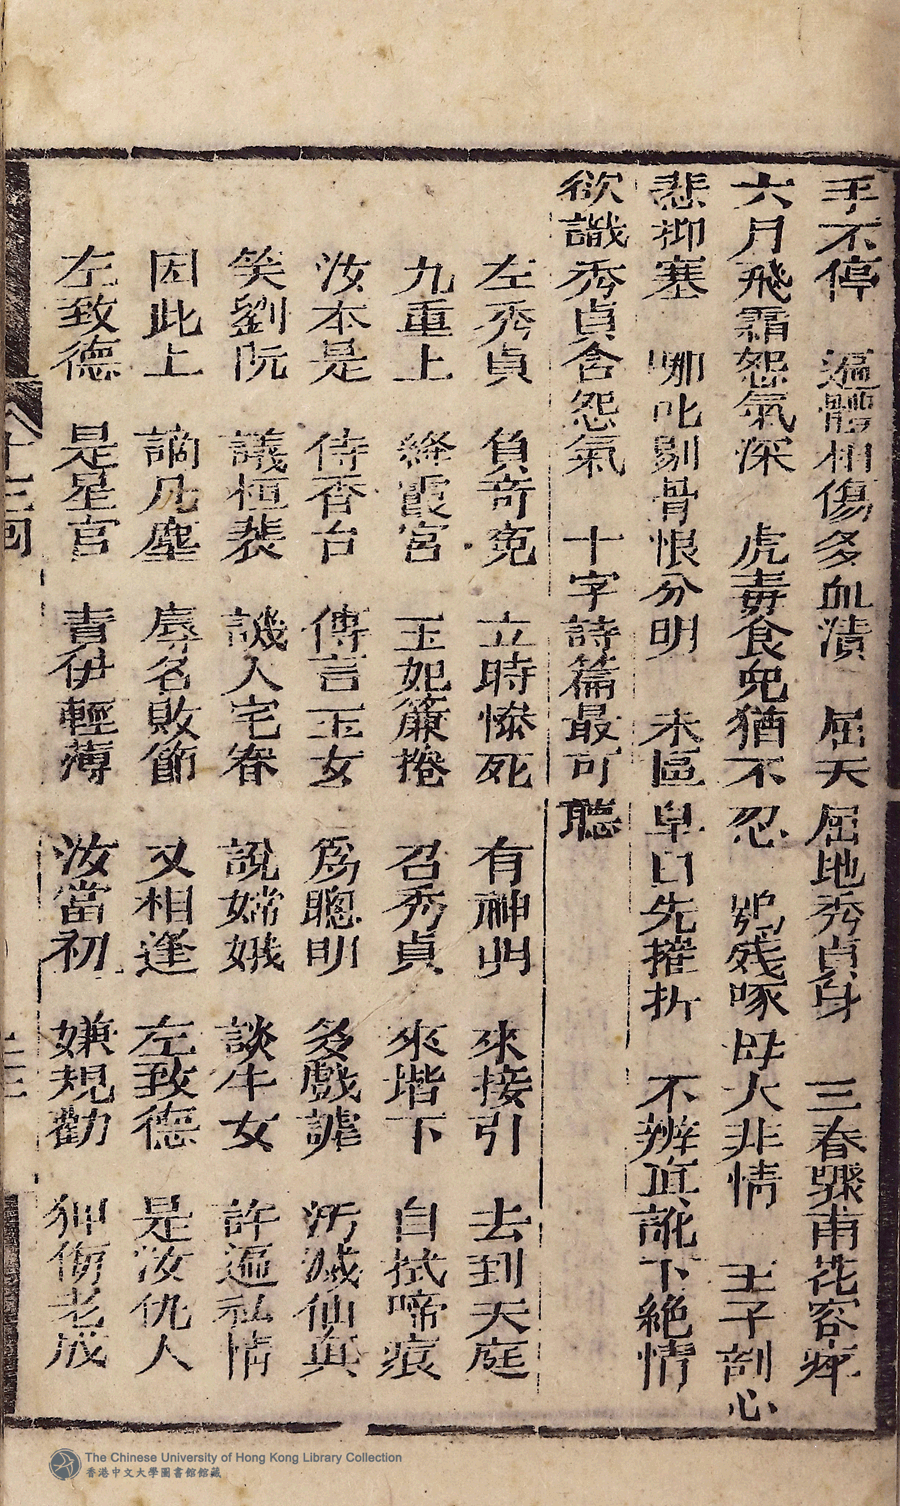 手不停　遍體相傷多血漬　屈天屈地秀貞身　三春驟雨花容瘁
六月飛霜怨氣深　虎毒食兒猶不忍　鴞殘啄母大非情　王子剖心
悲抑塞　哪叱剔骨恨分明　未區皁白先摧折　不辨直訛下絕情
欲識秀貞含怨氣　十字詩篇最可聽
左秀貞　負奇寃　立時慘死　有神明　來接引　去到天庭
九重上　絳霞宮　玉妃簾捲　召秀貞　來堦下　自拭啼痕
汝本是　侍香台　傳言玉女　為聰明　多戲謔　汚滅仙真
笑劉阮　議恒裴　譏人宅眷　說嫦娥　談牛女　許遍私情
因此上　謫凡塵　辱名敗節　又相逢　左致德　是汝仇人
左致德　是星官　責伊輕薄　汝當初　嫌規勸　狎侮老成
十三回
The Chinese University of Hong Kong Library Collection
香港中文大學圖書館館藏